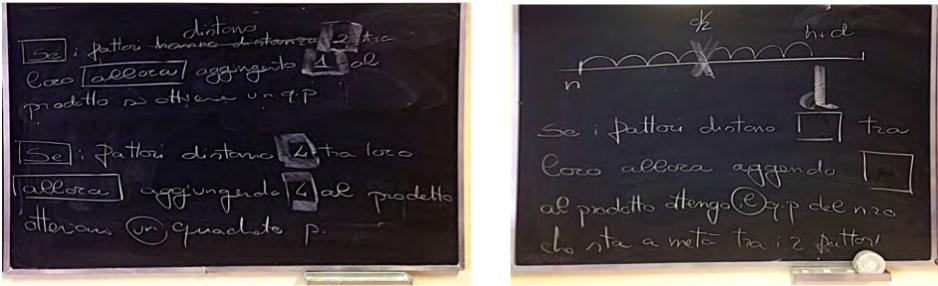 distano
Se i fattori hanno distanza 2 tra
loro allora aggiungento 1 al
prodotto si ottiene un q.p
Se i fattori distano 4 tra loro
allora aggiungendo 4 al prodotto
otteniamo un quadrato p.
d/2
n+d
n
d
Se i fattori distano tra
loro allora aggendo
al prodotto ottengo il q.p del n.ro
che sta a metà tra i 2 fattori